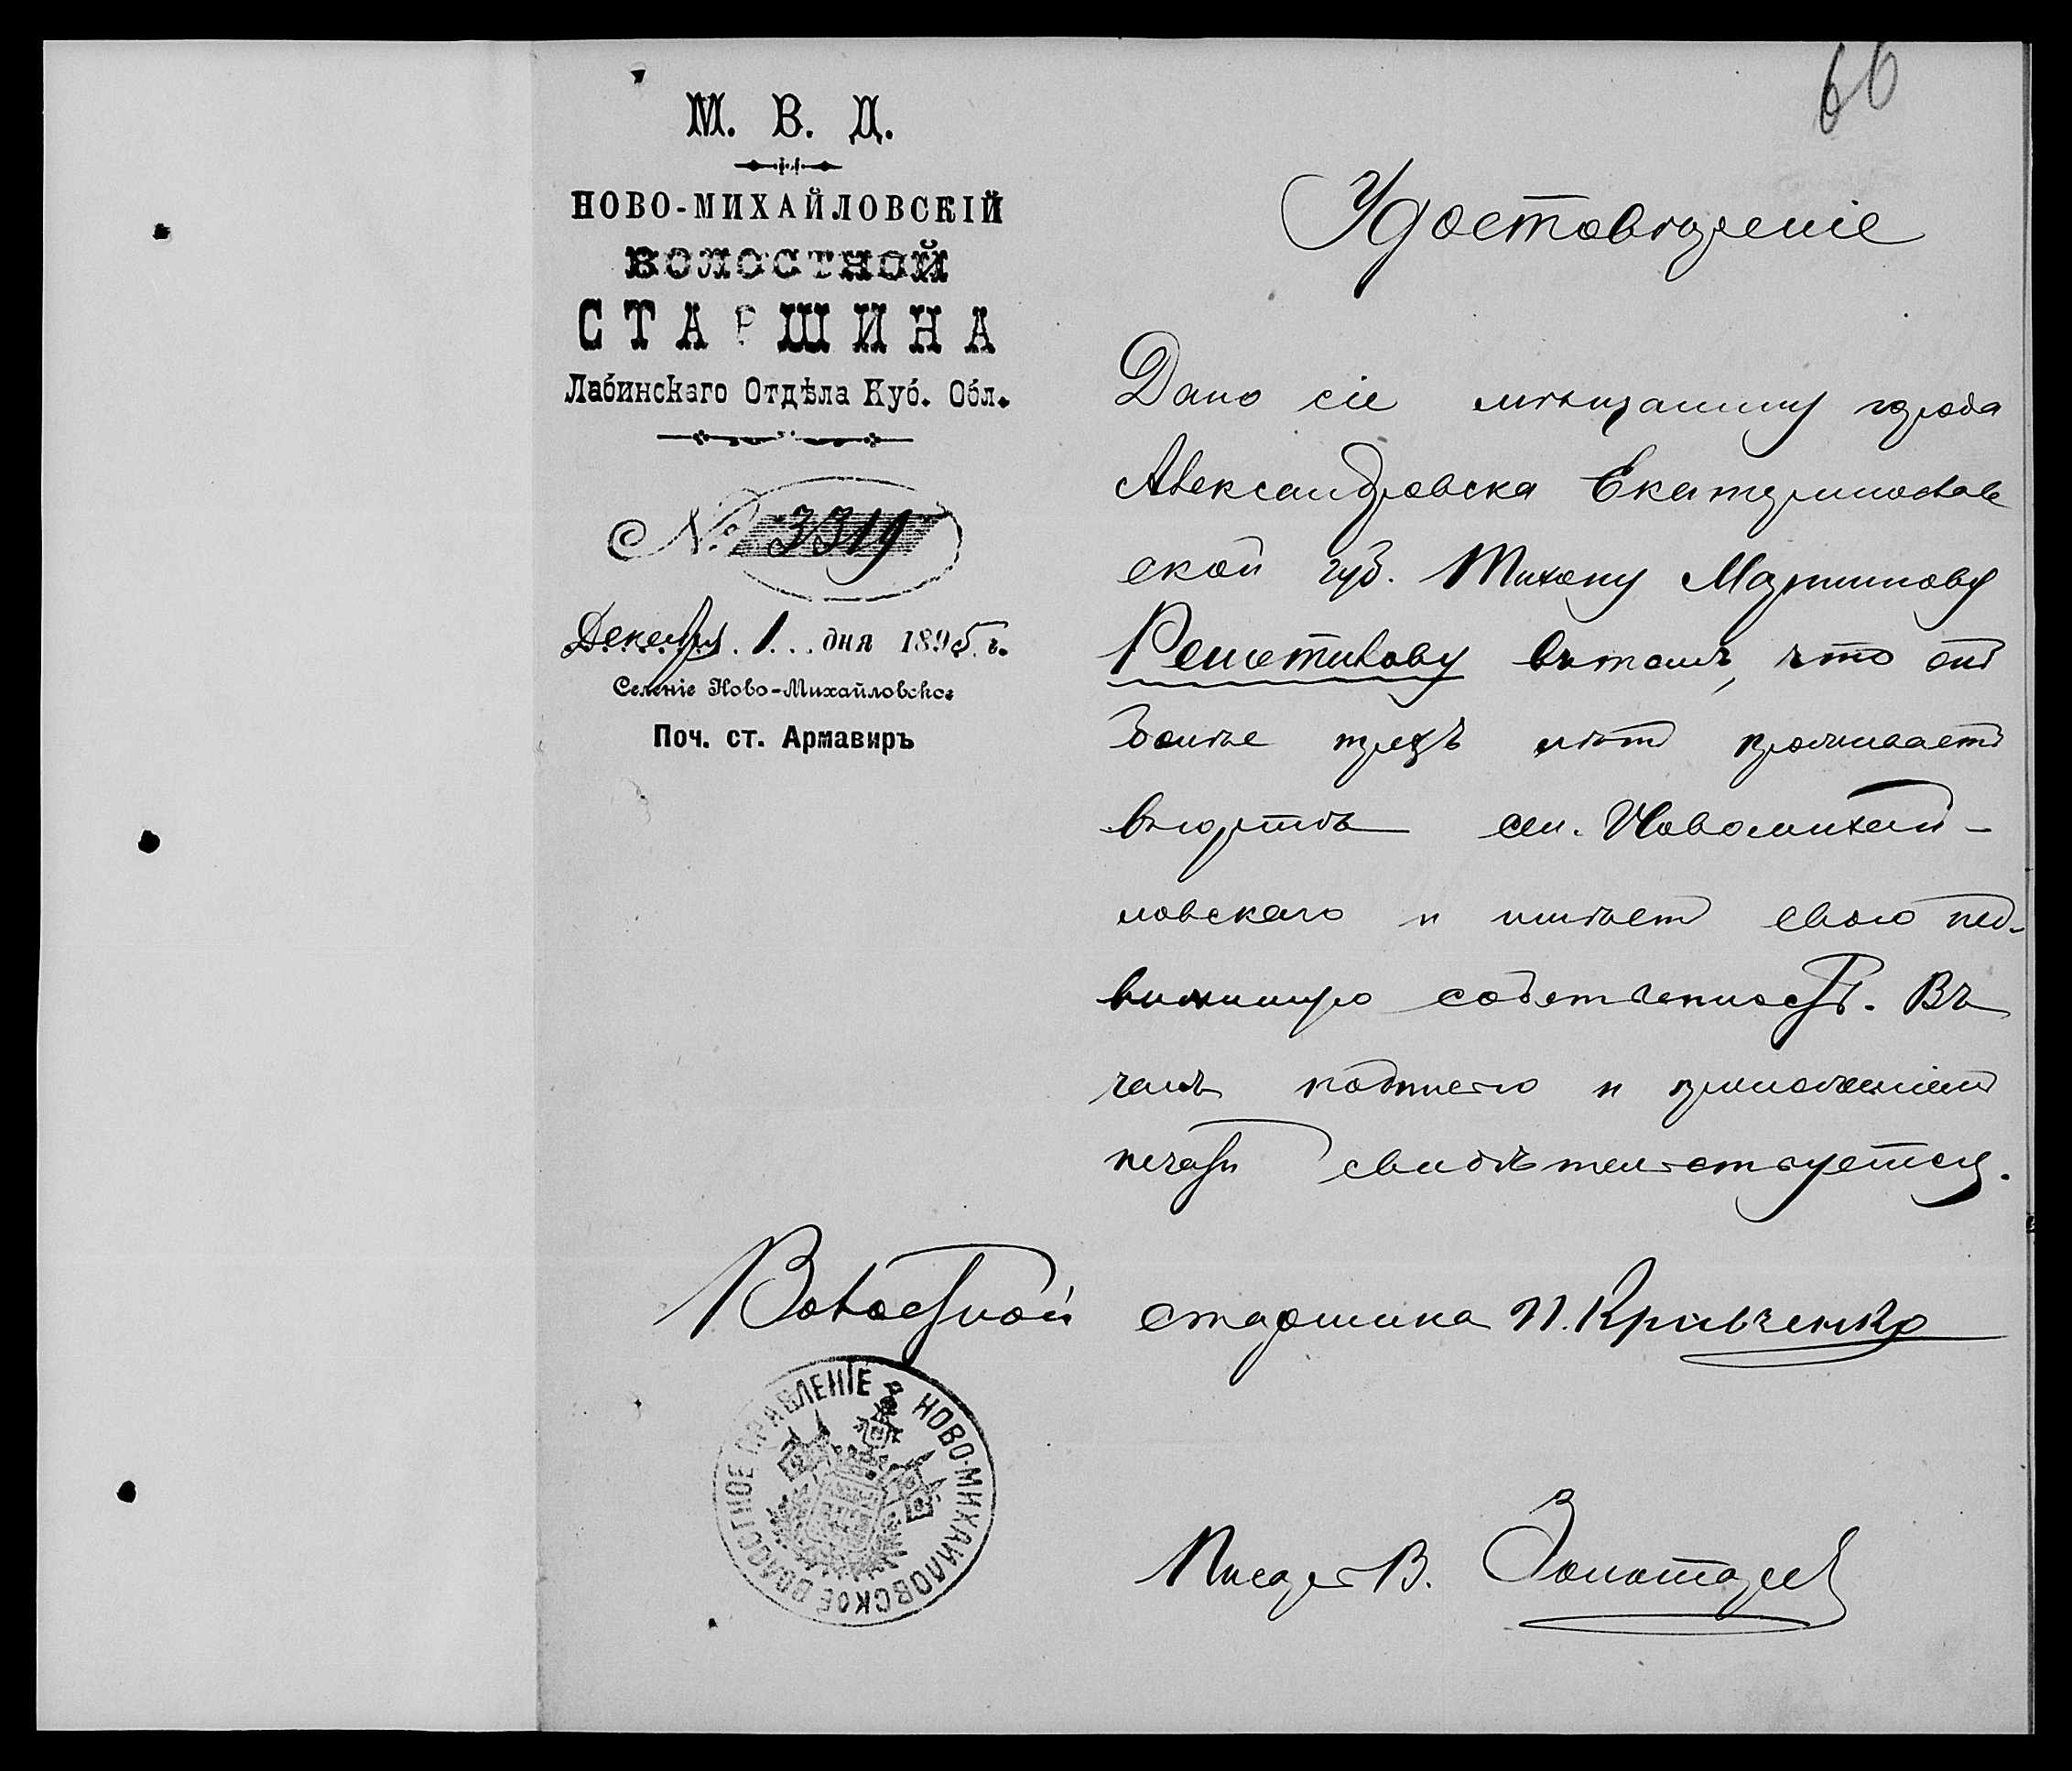 66
М. В. Д.
НОВО-МИХАЙЛОВСКІЙ
ВОЛОСТНОЙ
СТАРШИНА
Лабинскаго Отдѣла Куб. Обл.
№ 3319
Декабря 1 дня 1895 г.
Селеніе Ново-Михайловское
Поч. ст. Армавиръ
Удостовѣреніе
Дано сіе мѣщанину города
Александровска Екатеринослав
ской губ. Тихону Мартинову
Решетилову въ томъ, что онъ
болѣе трехъ лѣтъ проживаетъ
въ чертѣ сел. Новомихай-
ловскаго и имѣетъ свою нед-
вижимую собственность. Въ
чемъ подписью и приложеніемъ
печати свидѣтельствуется.
Волостной старшина П. Кривченко
НОВО-МИХАЙЛОВСКОЕ ВОЛОСТНОЕ ПРАВЛЕНІЕ
Писарь В. Золотарев